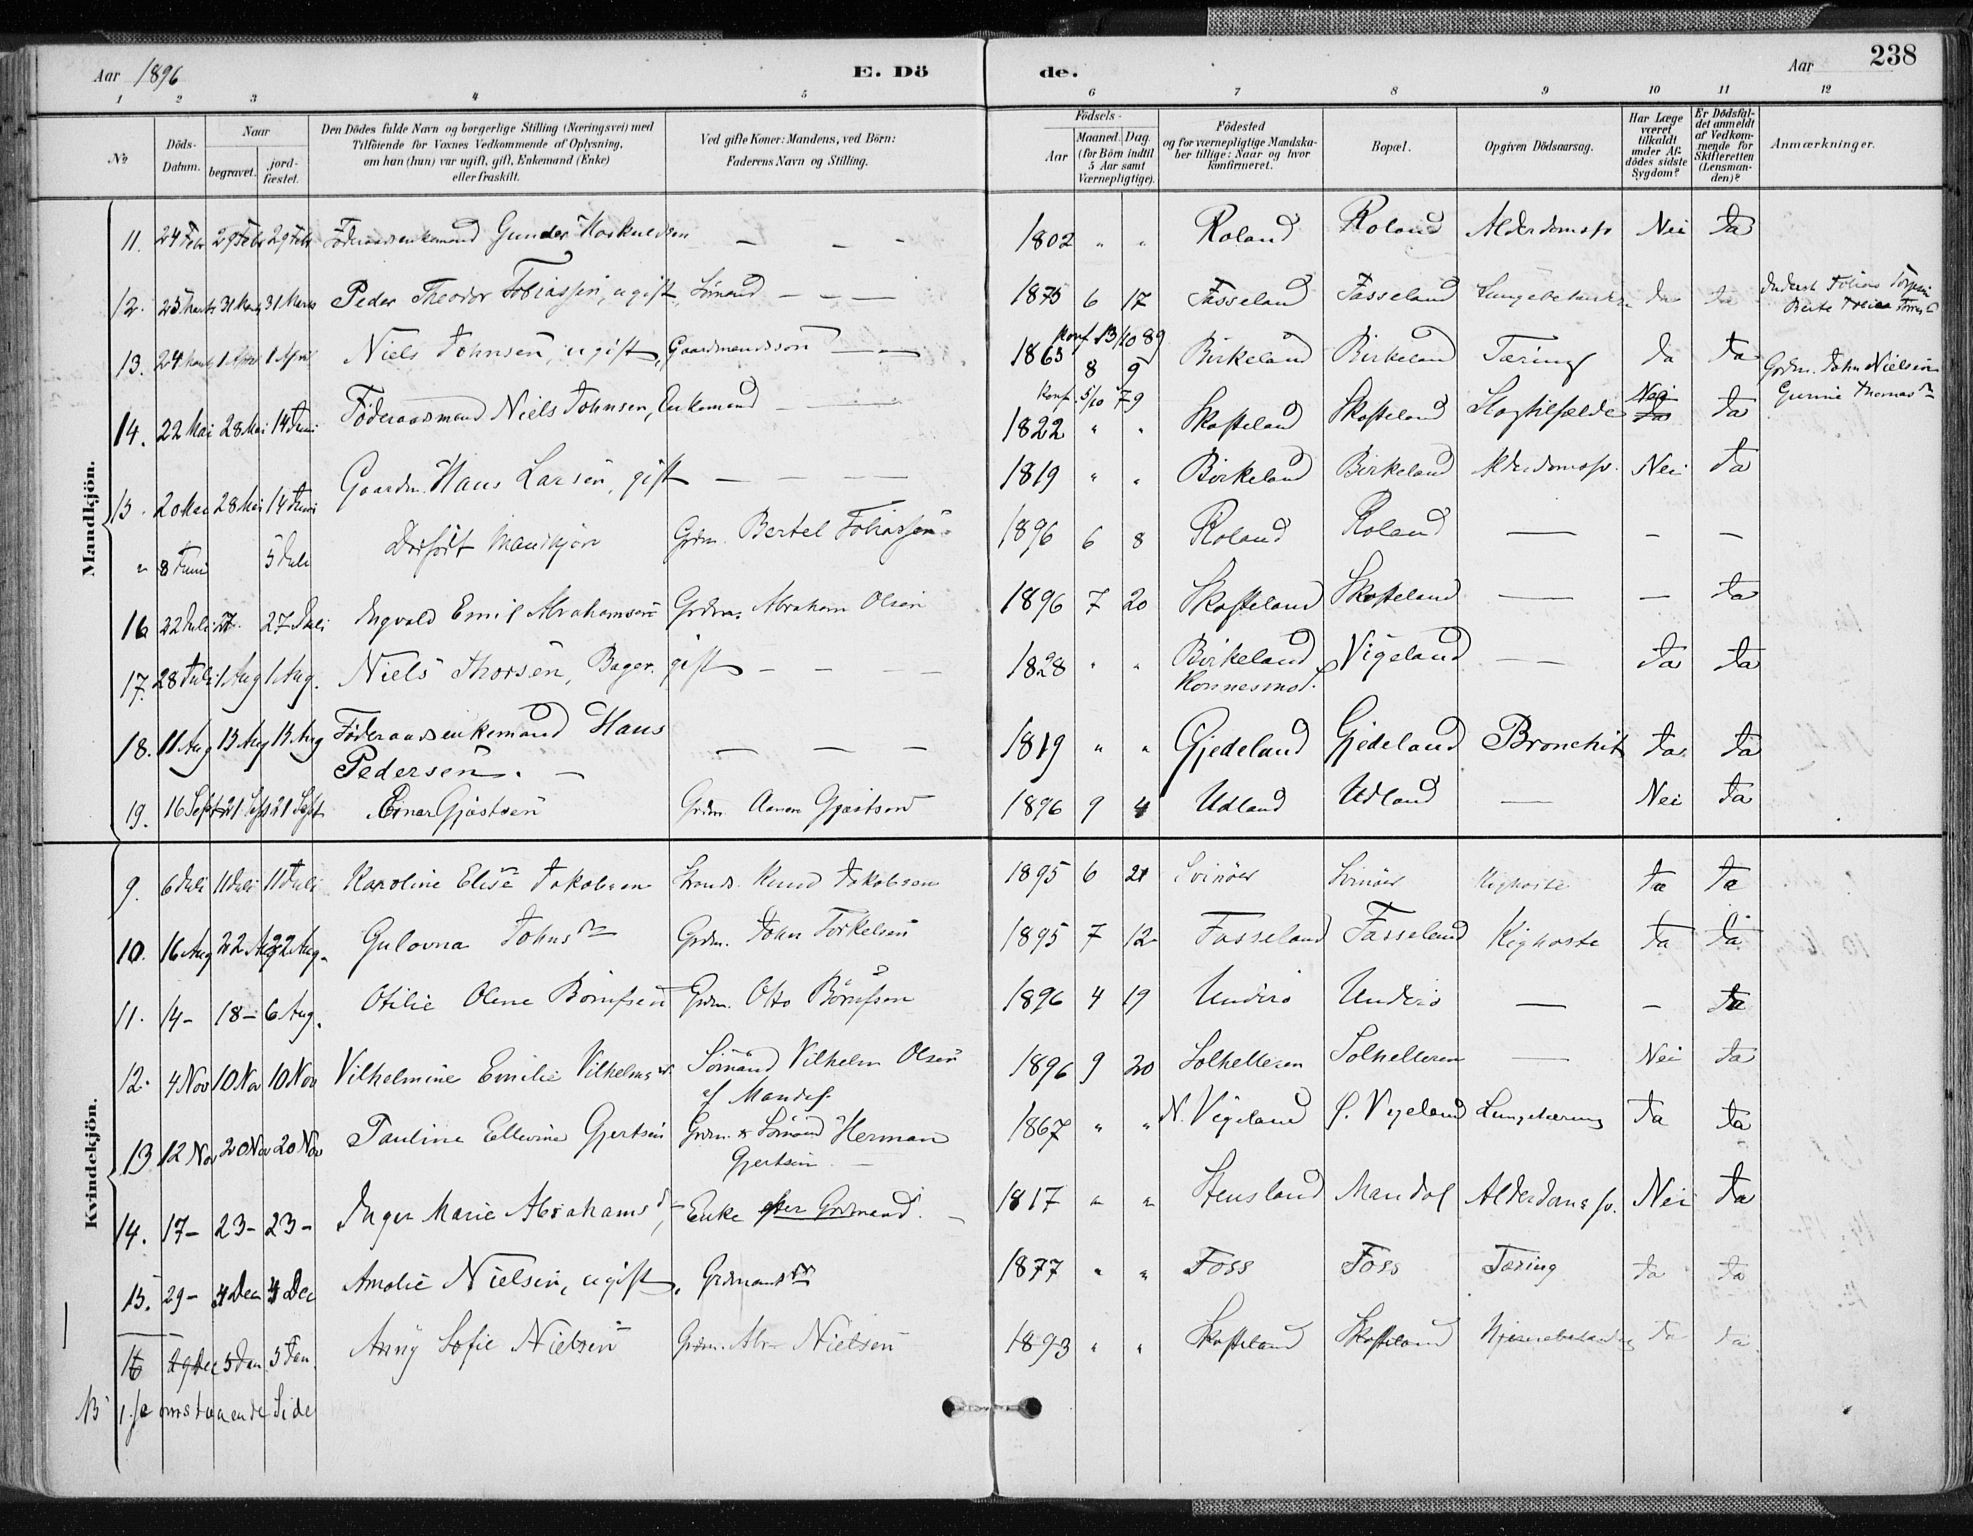 238
Aar 1896 E. Dö de. Aar
1 2 3 4 5 6 7 8 9 10 11 12
No
Döds-Datum.
Naar
begravet.
jord-fæstet.
Den Dödes fulde Navn og borgerlige Stilling (Næringsvei) med
Tilföiende for Voxnes Vedkommende af Oplysning,
om han (hun) var ugift, gift, Enkemand (Enke)
eller fraskilt.
Ved gifte Koner: Mandens, ved Börn:
Faderens Navn og Stilling.
Födsels-
Aar
Maaned. Dag.
(for Börn indtil
5 Aar samt
Værnepligtige).
Födested
og for værnepligtige Mandska-
ber tillige: Naar og hvor
konfirmeret.
Bopæl.
Opgiven Dödsaarsag.
Har Læge
været
tilkaldt
under Af-
dödes sidste
Sygdom?
Er Dödsfal-
det anmeldt
af Vedkom-
mende for
Skifteretten
(Lensman-
den)?
Anmærkninger.
Mandkjön.
11. 24 Febr 29 Febr 29 Febr Föderaadsenkemand Gunder Hoskuldsen — — — 1802 " " Roland Roland Alderdomssv Nei Ja
12. 25 Marts 31 Marts 31 Marts Peder Theodor Tobiassen, ugift, Sömand — — — 1875 6 17 Fasseland Fasseland Ja Ja
Konf. 13/10 89
13. 24 Marts 1 April 1 April Niels Johnsen, ugift, Gaardmandssön — — 1863 8 9 Birkeland Birkeland Tæring Ja Ja Grdm. John Nielsen
Konf. 5/10 79 Gurine Thomasdr
14. 22 Mai 28 Mai 14 Juni Föderaadsmand Niels Johnsen, Enkemand — — 1822 " " Skofteland Skofteland Slagtilfælde Nei Ja Ja
15. 20 Mai 28 Mai 14 Juni Gaardm. Hans Larsen, gift — — — — 1819 " " Birkeland Birkeland Alderdomssv. Nei Ja
" 8 Juni 5 Juli Dödfödt Mandkjön Grdm. Bertel Tobiassen. 1896 6 8 Roland Roland — — —
16 22 Juli 27. 27 Juli Ingvald Emil Abrahamsen Grdm. Abraham Olsen 1896 7 20 Skofteland Skofteland — — Ja
17. 28 Juli 1 Aug 1 Aug. Niels Thorsen, Bager. gift — — — 1828 " " Birkeland Vigeland — — Ja Ja
Konnesmo
18. 11 Aug 13 Aug 13 Aug Föderaadsenkemand Hans — — — 1819 " " Gjedeland Gjedeland Bronchit Ja Ja
Pedersen. —
19. 16 Sept 21 Sept 21 Sept Einar Gjöstsen Grdm. Aanen Gjöstsen 1896 9 4 Udland Udland — Nei Ja
Kvindekjön.
9. 6 Juli 11 Juli 11 Juli Karoline Elise Jakobsen Knud Jakobsen 1895 6 21 Svinöer Svinöer Kighoste Ja Ja
10. 16 Aug 22 Aug 22 Aug. Gulovna Johnsdr Grdm. John Torkelsen 1895 7 12 Fasseland Fasseland Kighoste Ja Ja
11. 14 - 18 - 6 Aug. Otilie Olene Börufsen Grdm. Otto Börufsen 1896 4 19 Underö Underö — — Ja
12. 4 Nov 10 Nov 10 Nov Vilhelmine Emilie Vilhelmsd. Sömand Vilhelm Olsen 1896 9 20 Solhelleren Solhelleren — Nei Ja
af Mandal.
13 12 Nov 20 Nov 20 Nov Pauline Ellevine Gjertsen Grdm. & Sömand Herman 1867 " " N. Vigeland Ö. Vigeland Lungetæring Ja Ja
Gjertsen. —
14. 17 - 23 - 23 - Inger Marie Abrahamsd, Enke efter Grdmand. — 1817 " " Stensland Mandal Alderdomssv. Nei Ja
15. 29 - 4 Dec 4 Dec Amalie Nielsen, ugift, Grdmandsdr 1877 " " Foss Foss Tæring Ja Ja
16 29 Dec 5 Jan 5 Jan. Anny Sofie Nielsen Grdm. Abr. Nielsen 1893 " " Skofteland Skofteland Ja Ja
NB omstaaende Side